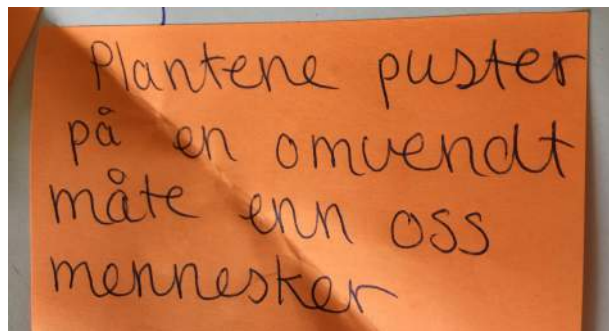 Plantene puster
på en omvendt
måte enn oss
mennesker